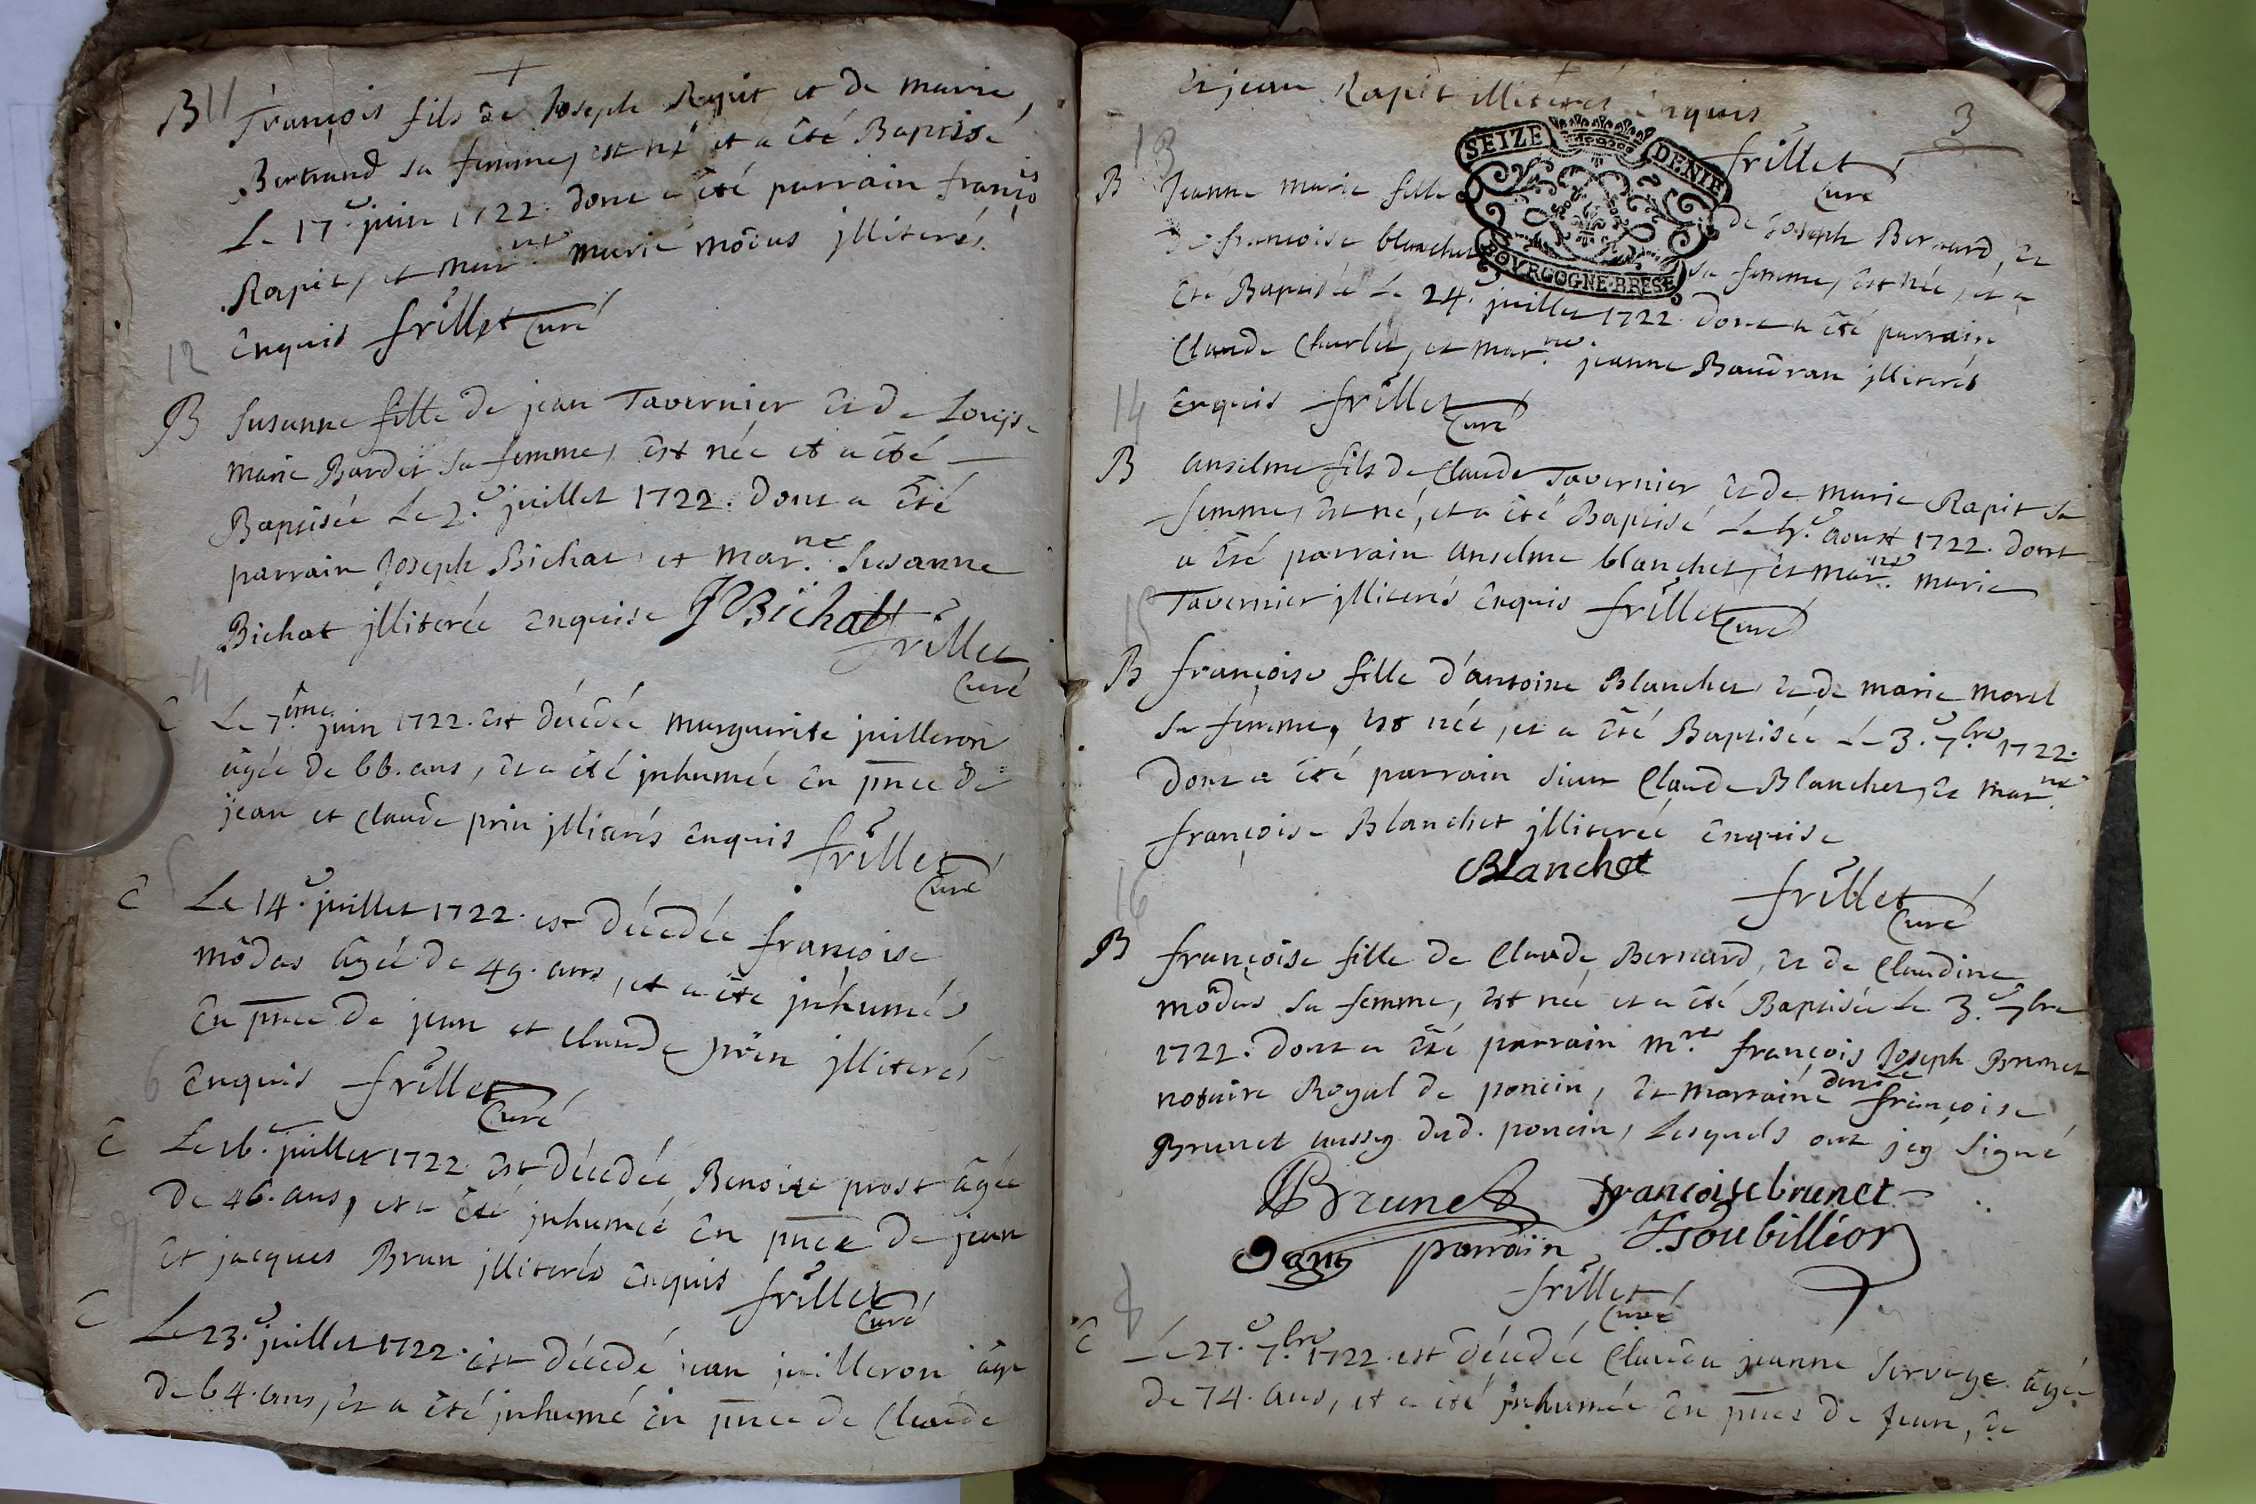 B 11 François fils de Joseph Rapit et de marie
Bertrand sa femme, est né et a été Baptisé
Le 17.e juin 1722. dont a été parrain françois
Rapit, et mar.ne marie môdas jlliterés
enquis frillet Curé
12
B Susanne fille de jean Tavernier et de Louyse
marie Bardet sa femme, est née et a été
Baptisée Le 2.e juillet 1722. dont a été
parrain Joseph Bichat et mar.ne Susanne
Bichat jlliterée enquise JBichatt
frillet
Curé
4
C Le 7.ème juin 1722. est décedée marguerite juilleron
âgée de 66. ans, et a été jnhumée en pnce de
jean et claude prin jlliterés enquis frillet
Curé
5
C Le 14.e juillet 1722. est décedée françoise
môdas âgée de 49. ans, et a été jnhumée
en pnce de jean et claude prin jlliterés
6 enquis frillet
Curé
C Le 16.e juillet 1722. est décedée Benoite prost âgée
de 46. ans, et a été jnhumée en pnce de jean
et jacques Brun jlliterés enquis frillet
Curé
7
C Le 23.e juillet 1722. est décedé jean juilleron âgé
de 64. ans, et a été jnhumé en pnce de Claude
et jean Rapit illiterés enquis
3
frillet
Curé
SEIZE DENIE
BOVRGOGNE-BRESE
13
B Jeanne marie fille de Joseph Bernard, et
de francoise blanchet sa femme, est née, et a
été Baptisée Le 24. juillet 1722. dont a été parrain
Claude Charlet, et mar.ne jeanne Baudran jlliterés
14 enquis frillet
Curé
B anselme fils de Claude Tavernier et de marie Rapit sa
femme, est né, et a été Baptisé Le aoust 1722. dont
a été parrain anselme blanchet, et mar.ne marie
Tavernier jlliterés enquis frillet Curé
15
B françoise fille d'antoine Blanchet et de marie morel
sa femme, est née, et a été Baptisée Le 3.e 7.bre 1722.
dont a été parrain sieur Claude Blanchet, et mar.ne
françoise Blanchet jlliterée enquise
Blanchet
frillet
Curé
16
B françoise fille de Claude Bernard, et de Claudine
môdas sa femme, est née et a été Baptisée Le 3.e 7bre
1722. dont a été parrain m.re françois Joseph Brunet
notaire Royal de poncin, et marraine françoise
Brunet aussy dud. poncin, Lesquels ont jcy signé
Brunet francoise brunet
parrain
frillet
Curé
8
C Le 27.e 7.bre 1722. est décedée Clauda jeanne Servage âgée
de 74. ans, et a été jnhumée en pnce de Jean, et